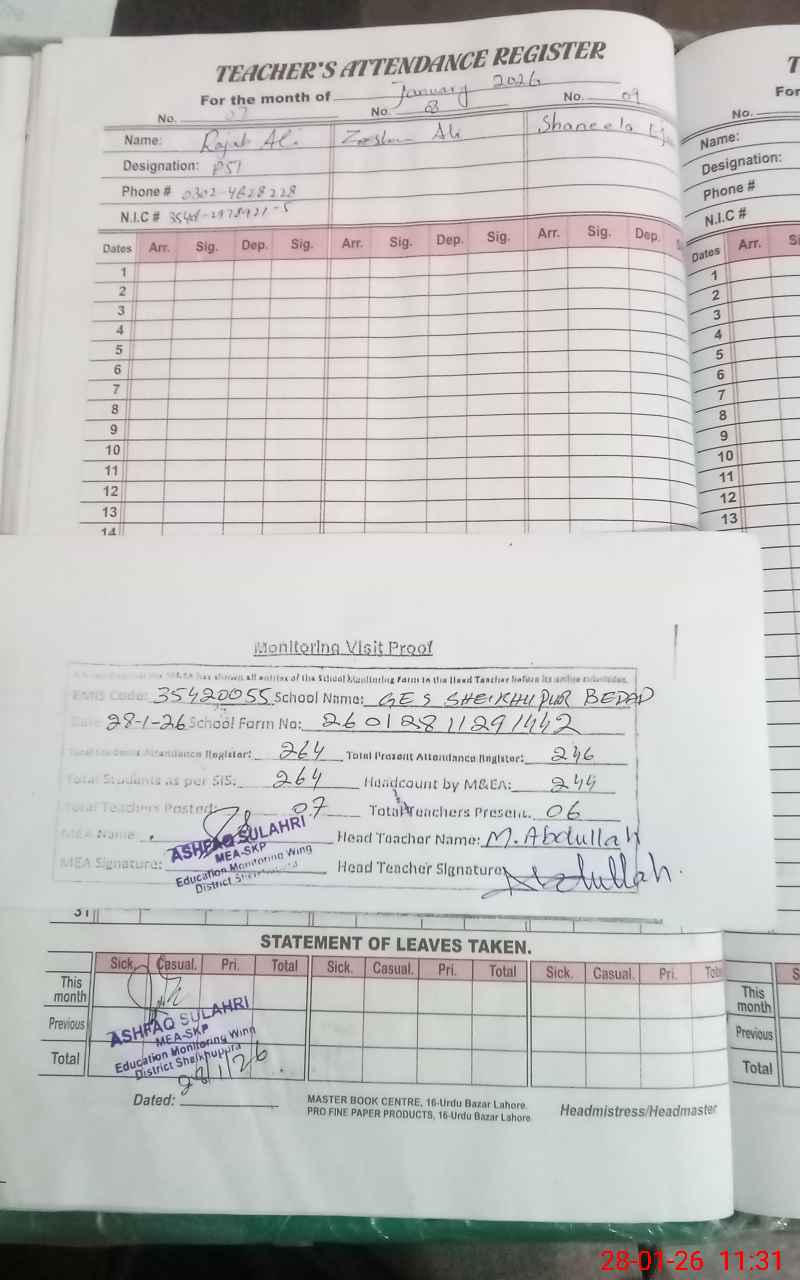 TEACHER'S ATTENDANCE REGISTER
For the month of January 2026
No. 07 No. 8 No. 09
Name: Rajab Ali Zeeshan Ali Shaneela
Designation: PST
Phone # 0302-4628228
N.I.C #
Dates Arr. Sig. Dep. Sig. Arr. Sig. Dep. Sig. Arr. Sig. Dep.
1
2
3
4
5
6
7
8
9
10
11
12
13
14
T
For
No.
Name:
Designation:
Phone #
N.I.C #
Dates Arr.
1
2
3
4
5
6
7
8
9
10
11
12
13
Monitoring Visit Proof
M&EA has shown all entries of the School Monitoring Form to the Head Teacher before its online submission.
EMIS Code: 35420055 School Name: GES SHEIKHUPUR BEDAD
Date 28-1-26 School Form No: 26012811291442
Total Students Attendance Register: 264 Total Present Attendance Register: 246
Total Students as per SIS: 264 Headcount by M&EA: 244
Total Teachers Posted: 07 Total Teachers Present. 06
MEA Name Head Teacher Name: M. Abdullah
MEA Signature: Head Teacher Signature: Abdullah.
ASHFAQ SULAHRI
MEA-SKP
Education Monitoring Wing
District
31
STATEMENT OF LEAVES TAKEN.
Sick. Casual. Pri. Total Sick. Casual. Pri. Total Sick. Casual. Pri. Total
This month
Previous
Total
ASHFAQ SULAHRI
MEA-SKP
Education Monitoring Wing
District Sheikhupura
28/1/26
Dated:
MASTER BOOK CENTRE, 16-Urdu Bazar Lahore.
PRO FINE PAPER PRODUCTS, 16-Urdu Bazar Lahore.
Headmistress/Headmaster
This month
Previous
Total
28-01-26 11:31